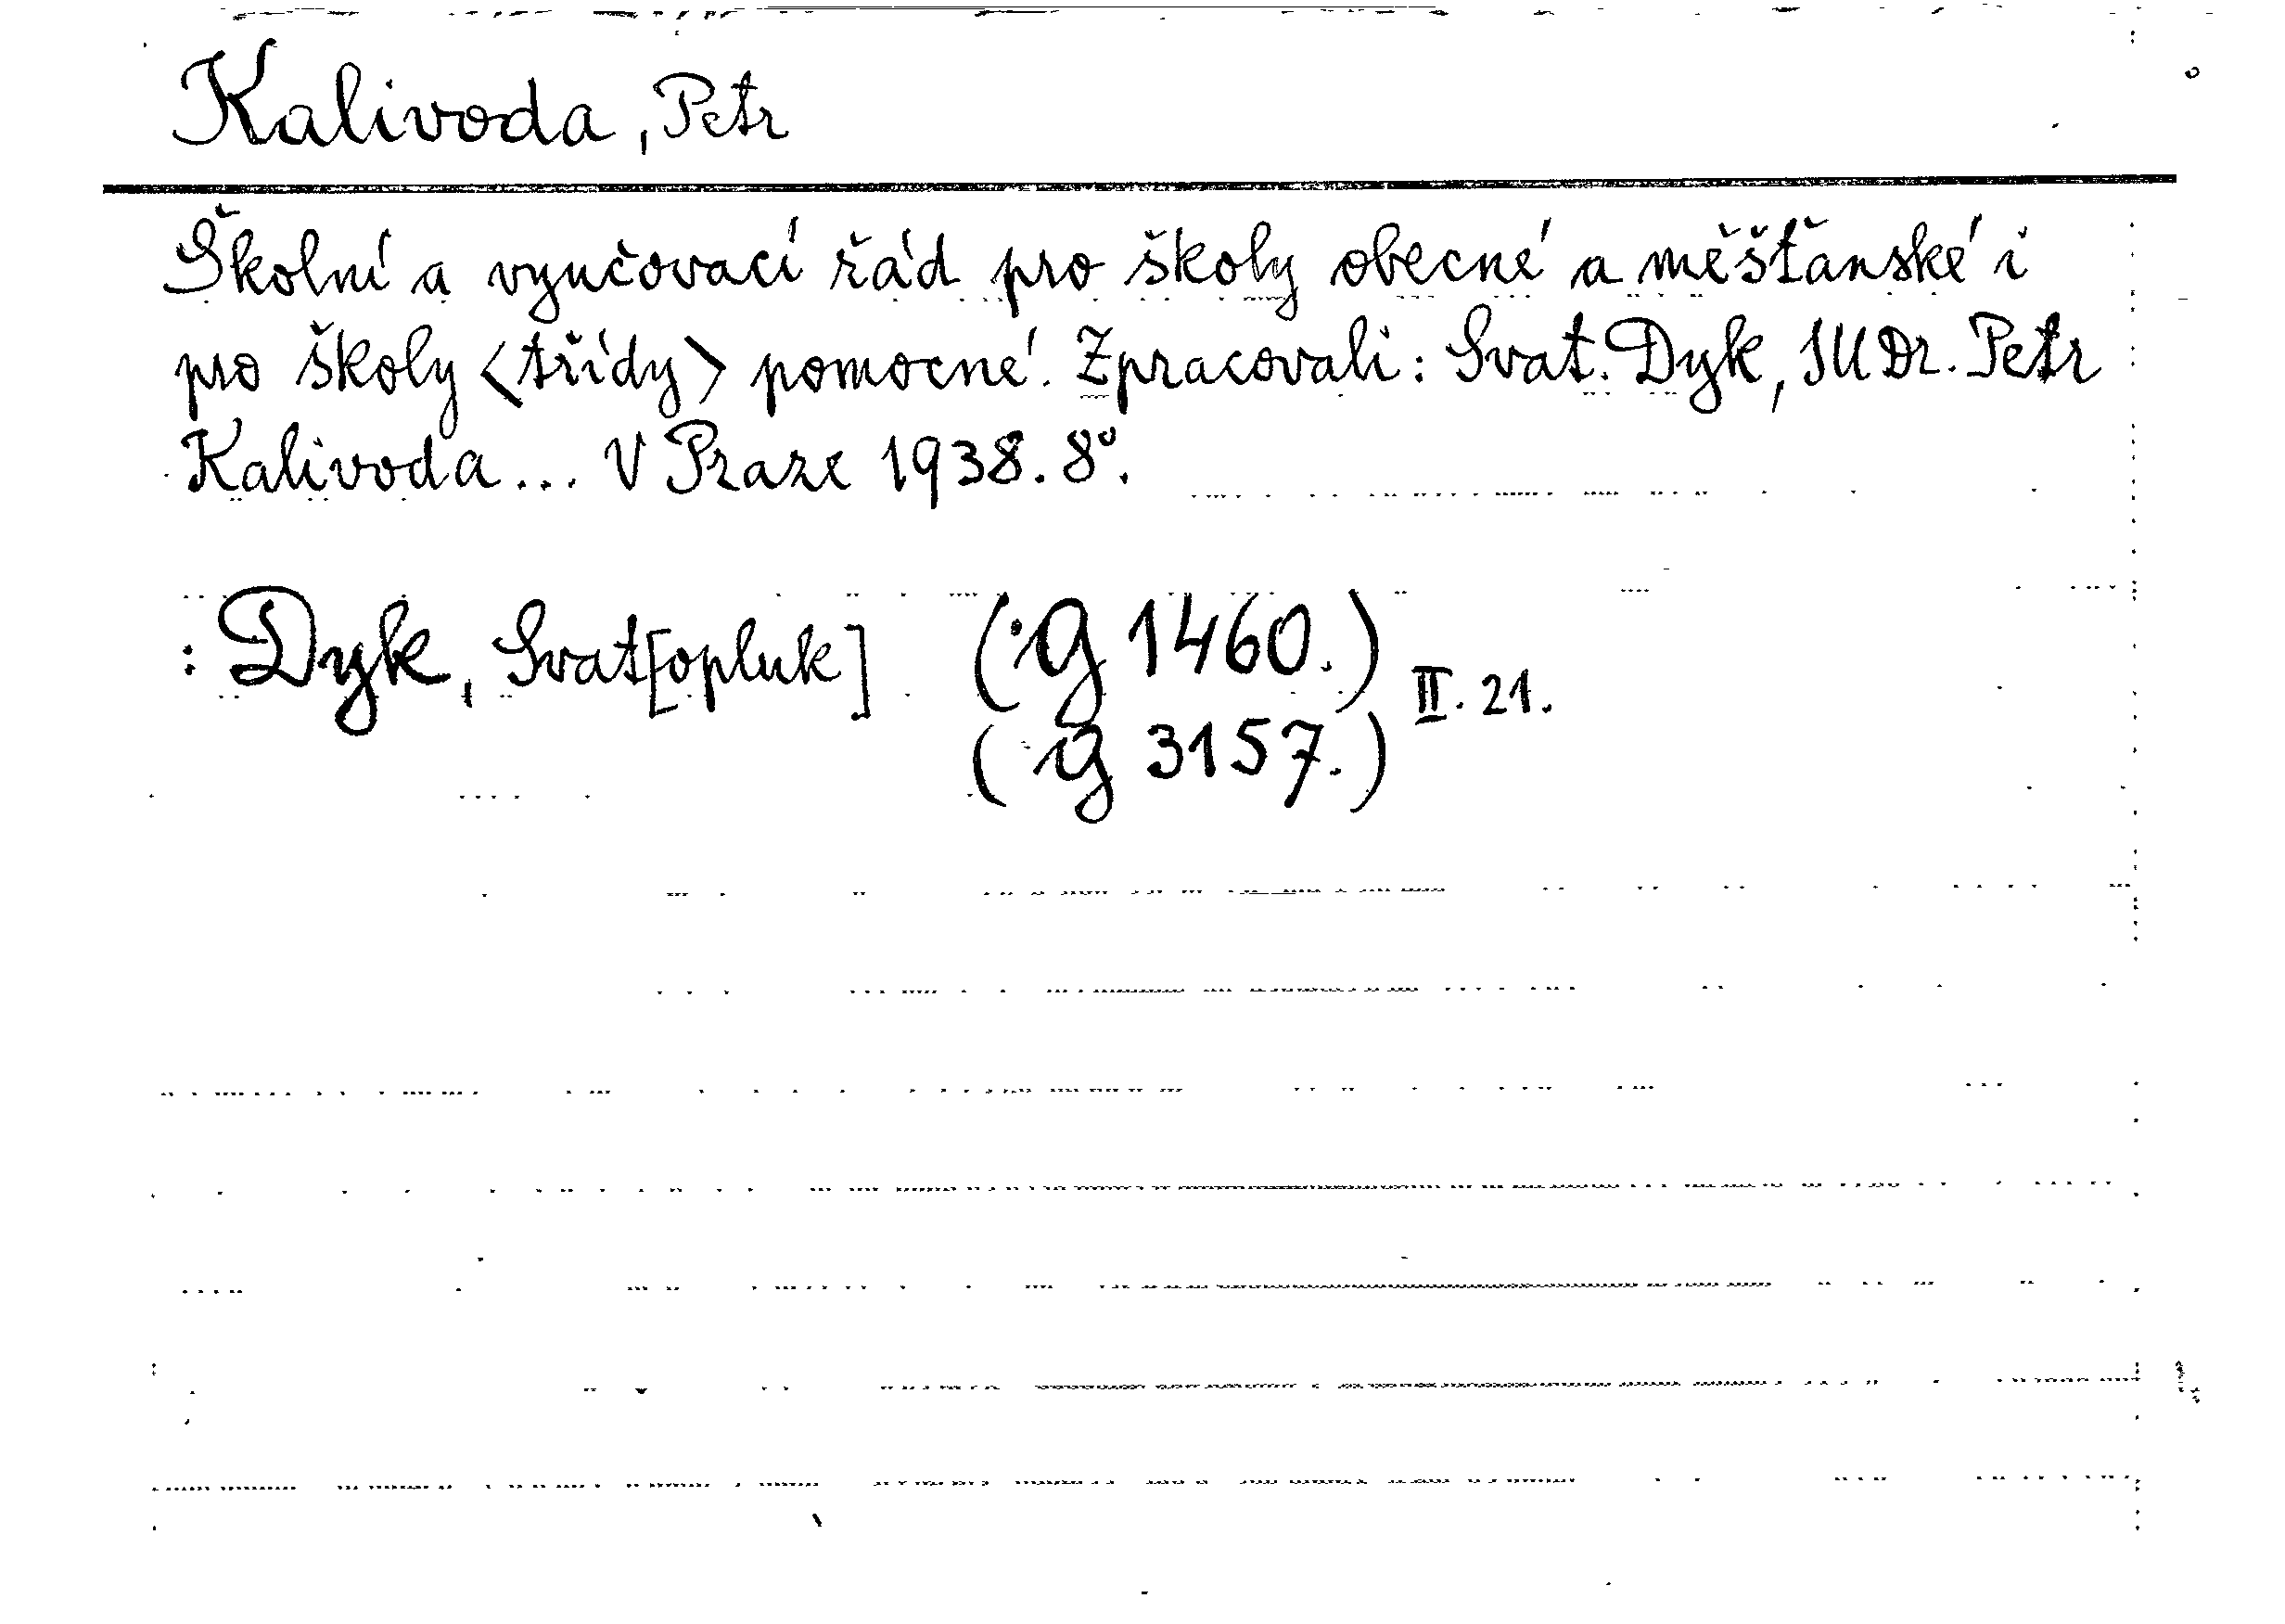 Kalivoda, Petr
Školní a vyučovací řád pro školy obecné a měšťanské i
pro školy <třídy> pomocné. Zpracovali: Svat. Dyk, JUDr. Petr
Kalivoda... V Praze 1938. 8°.
: Dyk, Svat[opluk] (ig 1460.) II. 21.
(ig 3157.)